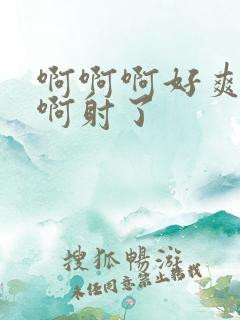 啊啊啊好爽
啊射了
搜狐暢游
未经同意禁止转载